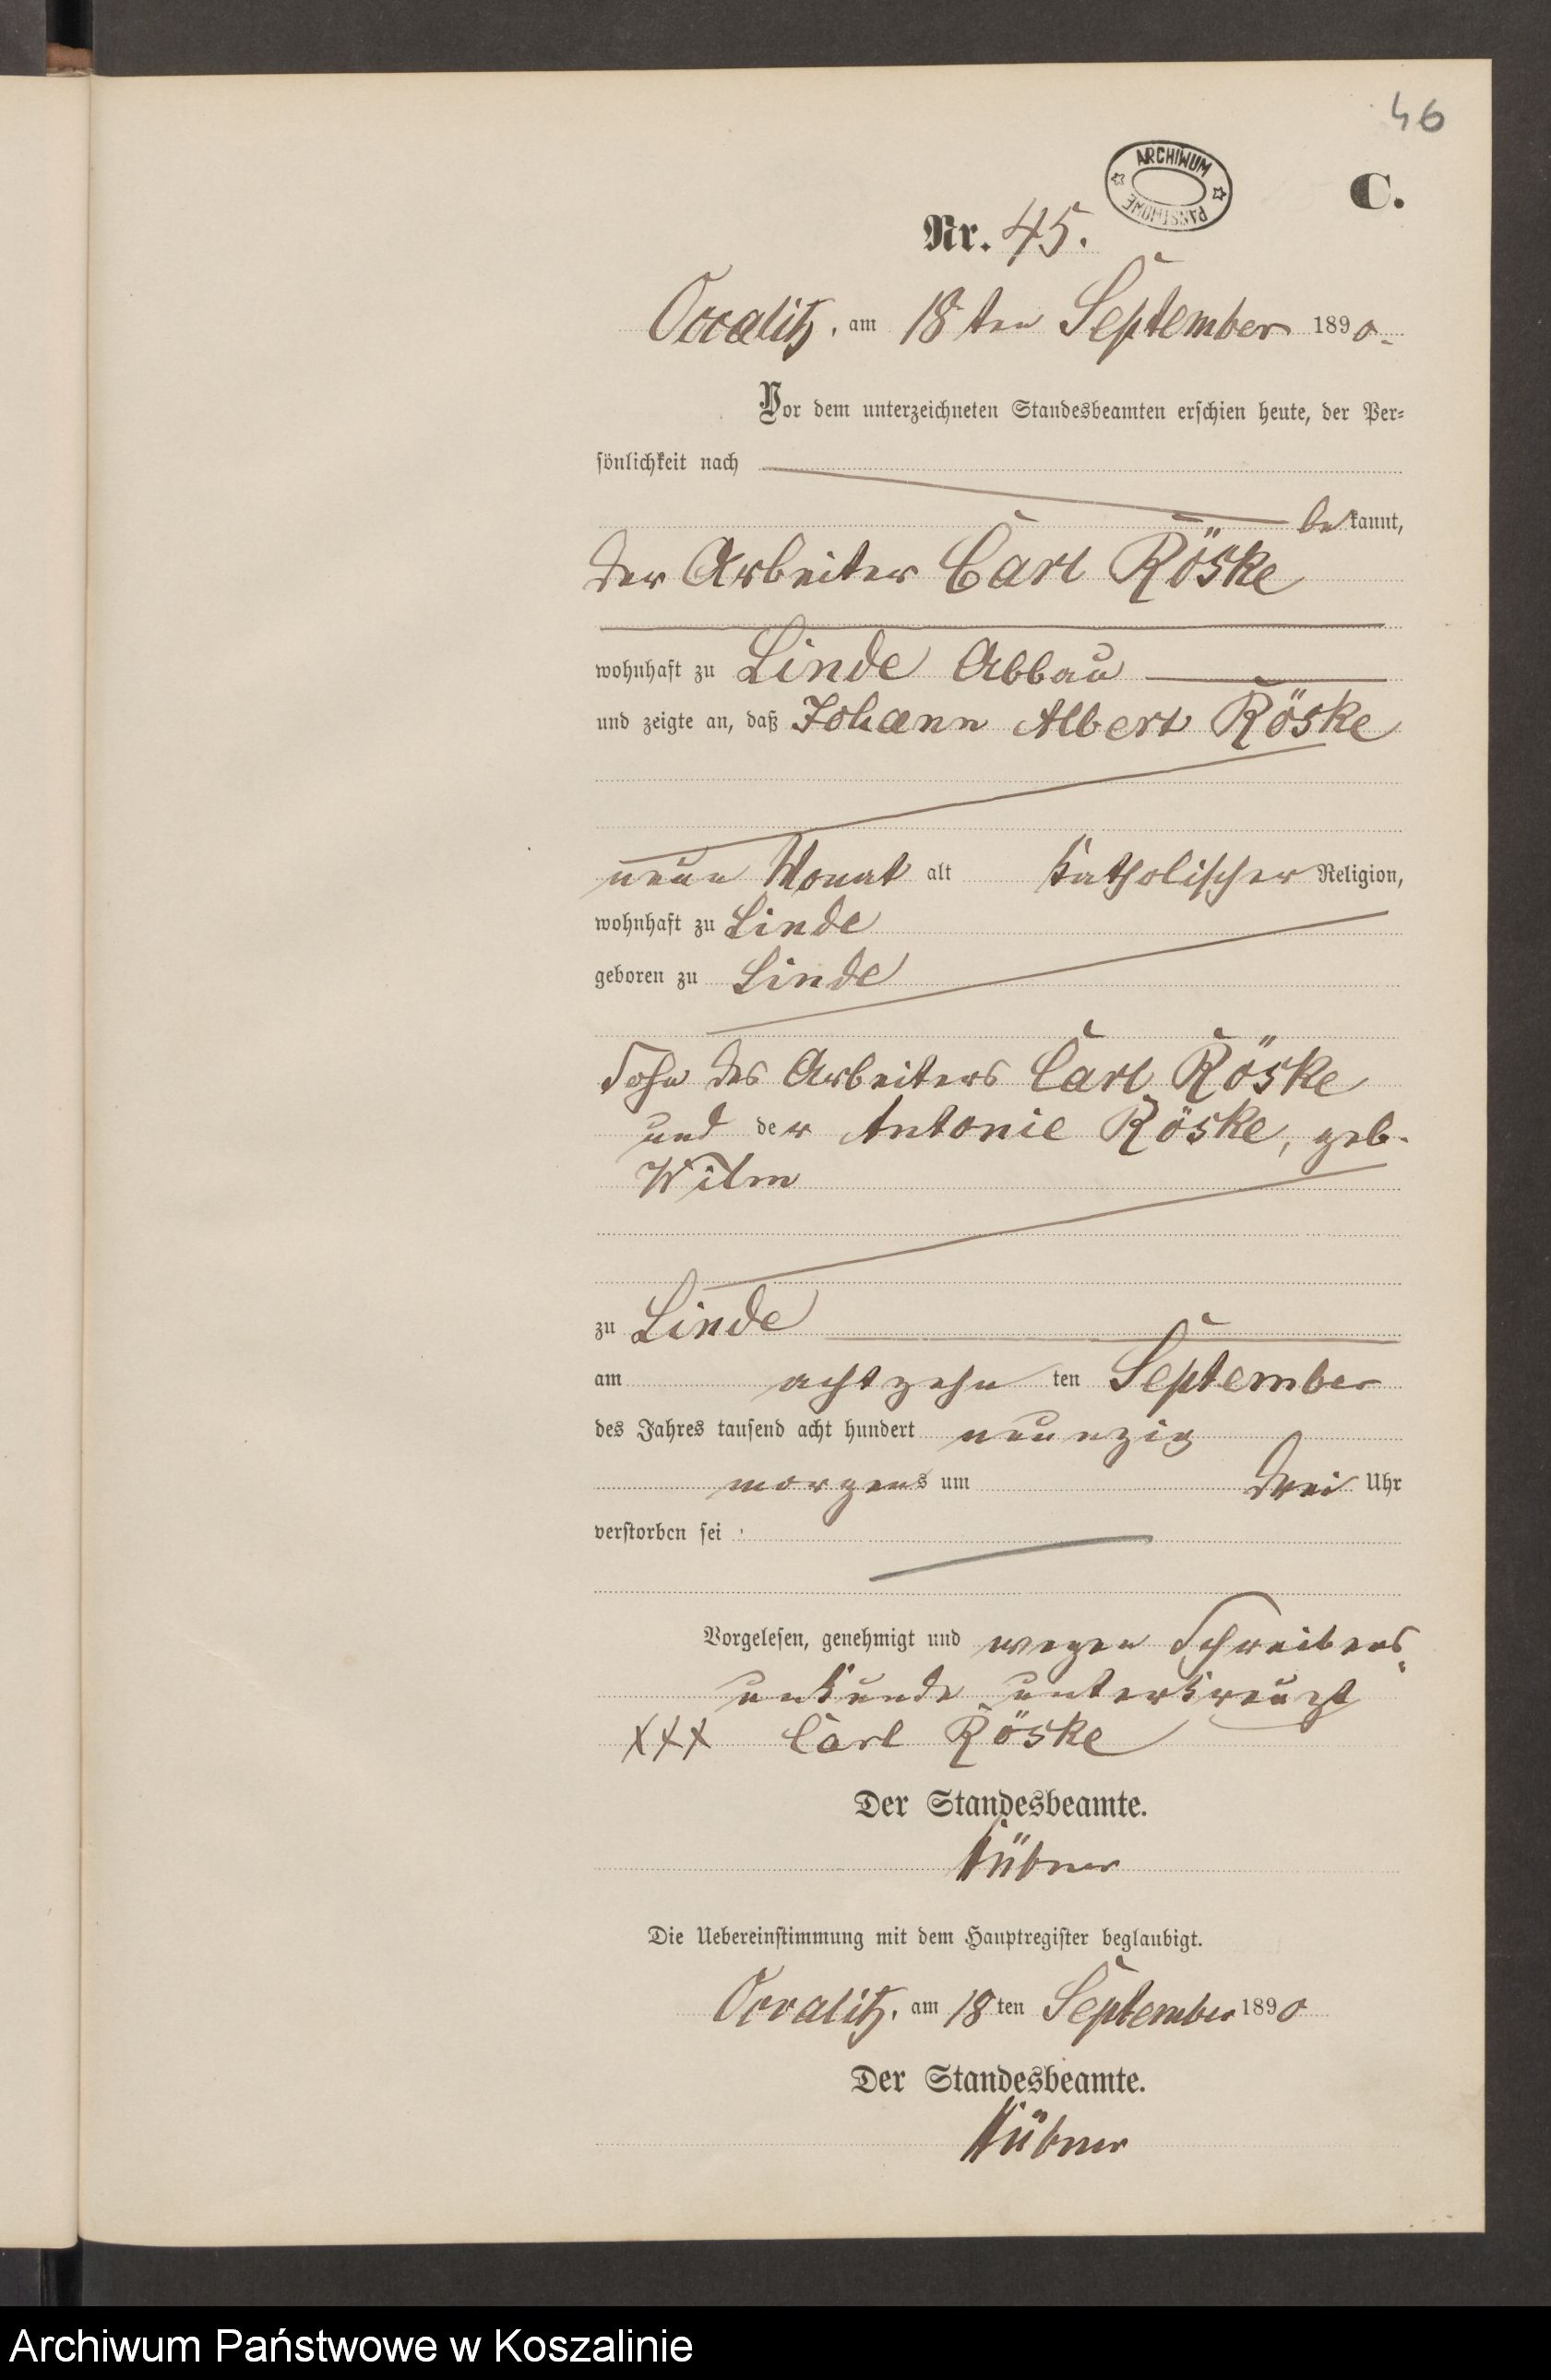 46
ARCHIWUM
PAŃSTWOWE
C.
Nr. 45.
Occalitz, am 18 ten September 1890.
Vor dem unterzeichneten Standesbeamten erschien heute, der Per=
sönlichkeit nach
bekannt,
der Arbeiter Carl Röske
wohnhaft zu Linde Abbau
und zeigte an, daß Johann Albert Röske
neun Monat alt katholischer Religion,
wohnhaft zu Linde
geboren zu Linde
Sohn des Arbeiters Carl Röske
und der Antonie Röske, geb.
Wilm
zu Linde
am achtzehn ten September
des Jahres tausend acht hundert neunzig
morgens um drei Uhr
verstorben sei
Vorgelesen, genehmigt und wegen Schreibens
unkunde unterkreuzt
XXX Carl Röske
Der Standesbeamte.
Hübner
Die Uebereinstimmung mit dem Hauptregister beglaubigt.
Occalitz, am 18 ten September 1890
Der Standesbeamte.
Hübner
Archiwum Państwowe w Koszalinie